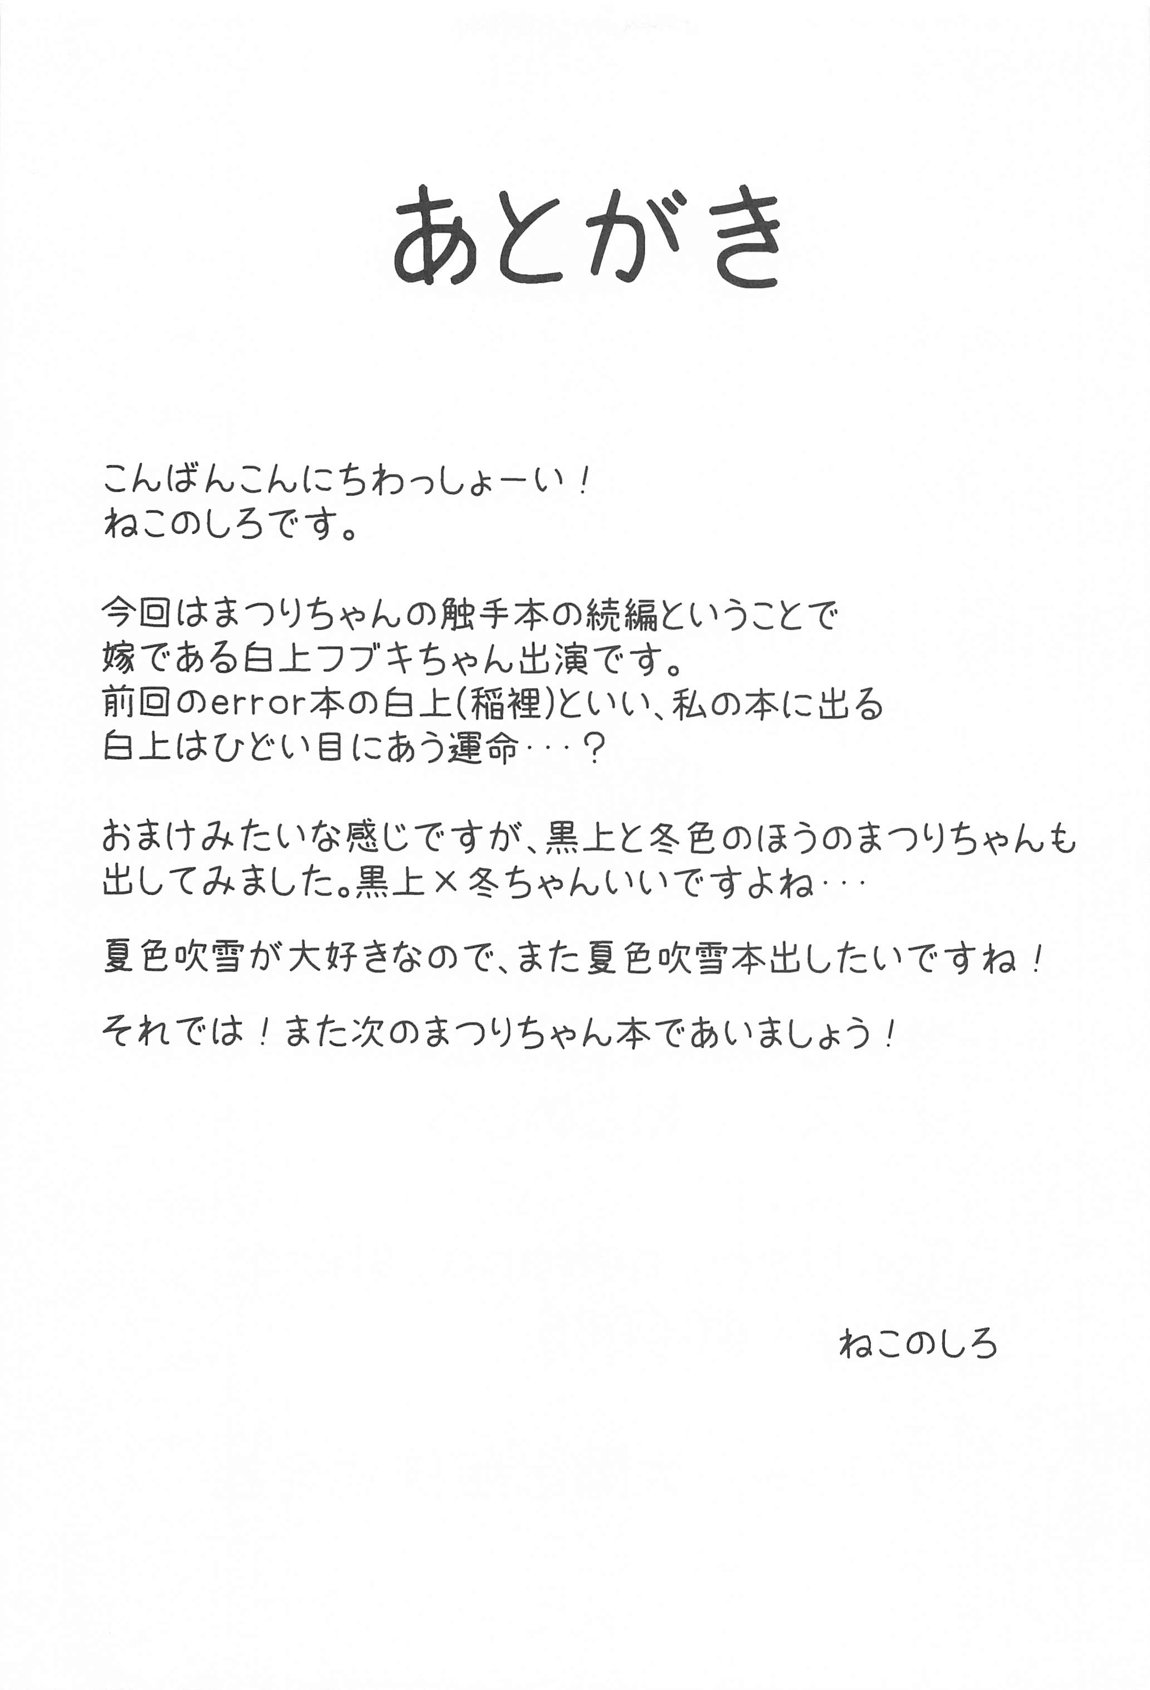 あとがき
こんばんこんにちわっしょーい！
ねこのしろです。
今回はまつりちゃんの触手本の続編ということで
嫁である白上フブキちゃん出演です。
前回のerror本の白上(稲裡)といい、私の本に出る
白上はひどい目にあう運命･･･？
おまけみたいな感じですが、黒上と冬色のほうのまつりちゃんも
出してみました。黒上×冬ちゃんいいですよね･･･
夏色吹雪が大好きなので、また夏色吹雪本出したいですね！
それでは！また次のまつりちゃん本であいましょう！
ねこのしろ